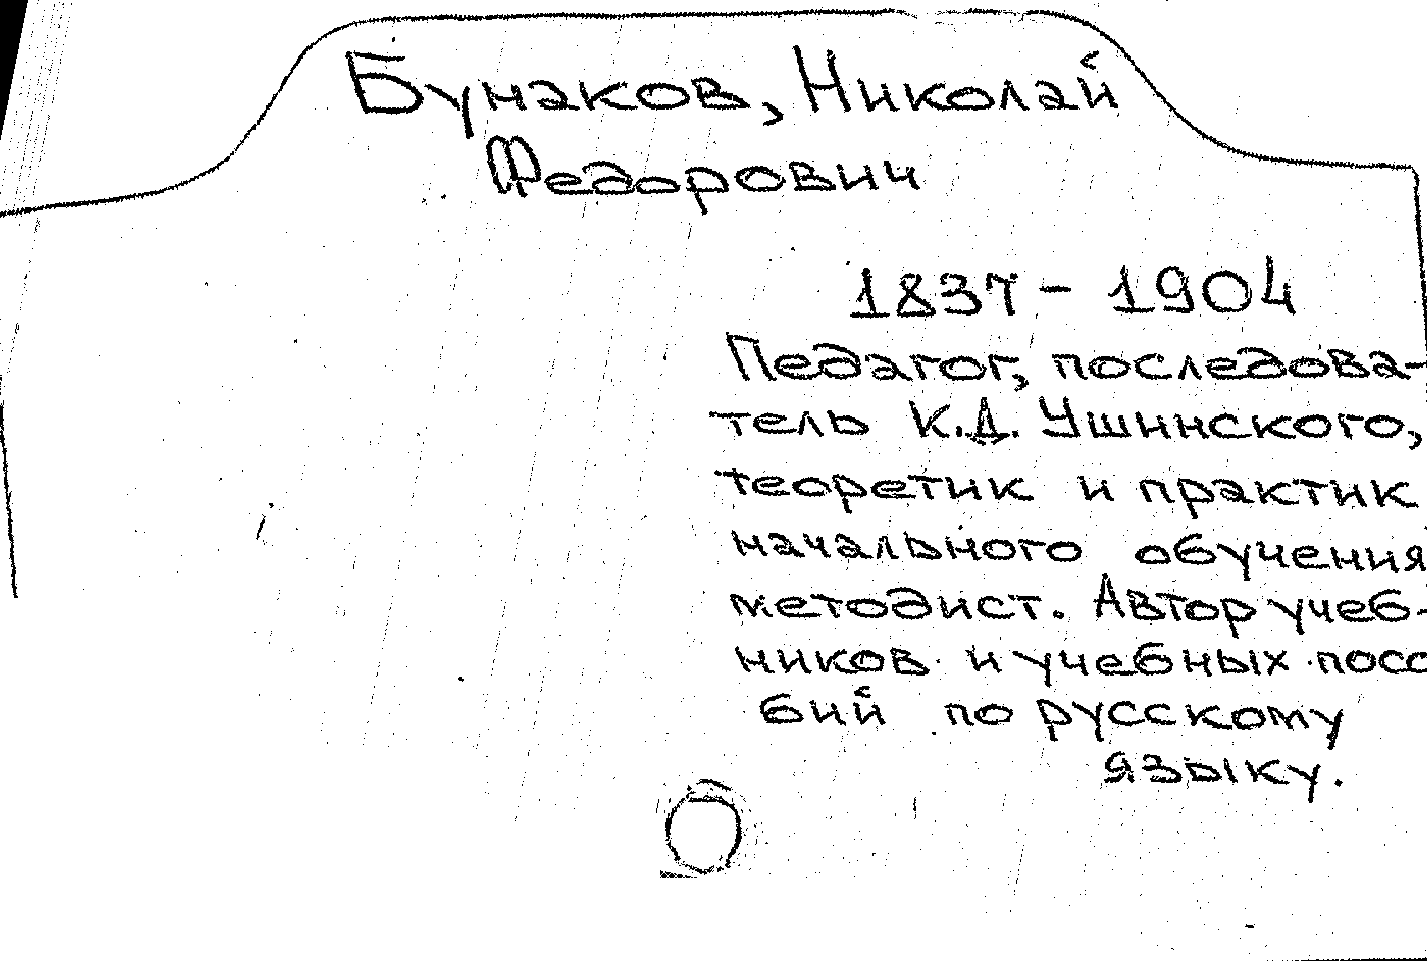 Бунаков, Николай
Федорович
1837 - 1904
Педагог, последова-
тель К.Д. Ушинского,
теоретик и практик
начального обучения
методист. Автор учеб-
ников и учебных посо
бий по русскому
языку.